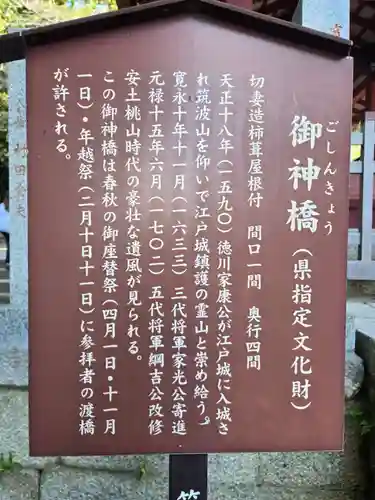 ごしんきょう
御神橋(県指定文化財)
切妻造柿葺屋根付 間口一間 奥行四間
天正十八年(一五九〇)徳川家康公が江戸城に入城さ
れ筑波山を仰いで江戸城鎮護の霊山と崇め給う。
寛永十年十一月(一六三三)三代将軍家光公寄進
元禄十五年六月(一七〇二)五代将軍綱吉公改修
安土桃山時代の豪壮な遺風が見られる。
この御神橋は春秋の御座替祭(四月一日・十一月
一日)・年越祭(二月十日十一日)に参拝者の渡橋
が許される。